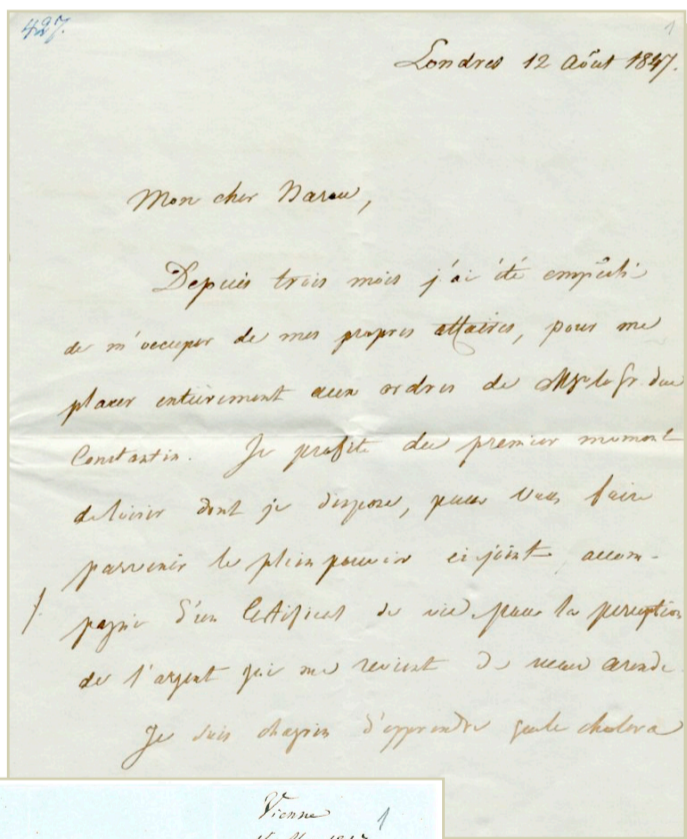 427.
1
Londres 12 Août 1847.
Mon cher Baron,
Depuis trois mois j'ai été empêché
de m'occuper de mes propres affaires, pour me
placer entièrement aux ordres de Mgr le Gr. duc
Constantin. Je profite du premier moment
de loisir dont je dispose, pour vous faire
parvenir le plein pouvoir ci joint, accom-
pagné d'un Certificat de vie pour la perception
de l'argent qui me revient de mon arende.
Je suis chagrin d'apprendre que le cholera
Vienne
1
1847